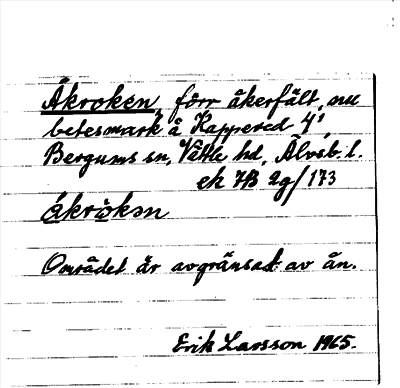 Åkroken, förr åkerfält, nu
betesmark å Kappered 4¹,
Bergums sn, Vättle hd, Älvsb. l.
ek 7B 2g/173
åkrökən
Området är avgränsat av ån.
Erik Larsson 1965.